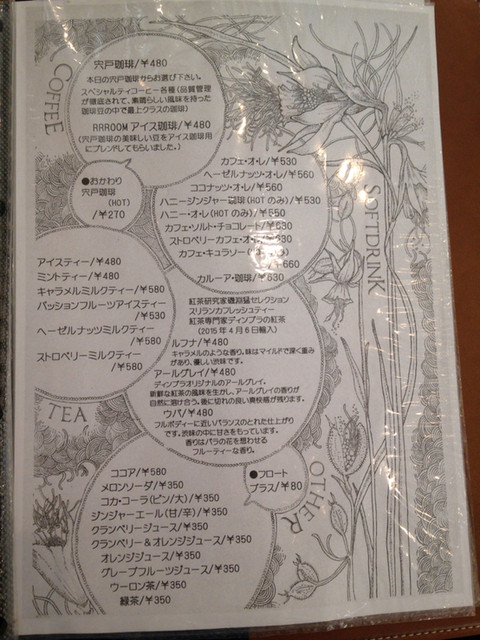 COFFEE
宍戸珈琲/¥480
本日の宍戸珈琲からお選び下さい。
スペシャルティコーヒー各種(品質管理
が徹底されて、素晴らしい風味を持った
珈琲豆の中で最上クラスの珈琲)
RRROOM アイス珈琲/¥480
(宍戸珈琲の美味しい豆をアイス珈琲用
にブレンドしてもらいました。)
●おかわり
宍戸珈琲
(HOT)
/¥270
SOFTDRINK
カフェ・オ・レ/¥530
ヘーゼルナッツ・オ・レ/¥560
ココナッツ・オ・レ/¥560
ハニージンジャー珈琲(HOTのみ)/¥530
ハニー・オ・レ(HOTのみ)/¥550
カフェ・ソルト・チョコレート/¥630
ストロベリー カフェ・オ・レ/¥630
カフェ・キュラソー(HOTのみ)
/¥660
カルーア・珈琲/¥630
アイスティー/¥480
ミントティー/¥480
キャラメルミルクティー/¥580
パッションフルーツアイスティー
/¥530
ヘーゼルナッツミルクティー
/¥580
ストロベリーミルクティー
/¥580
TEA
紅茶研究家磯淵猛セレクション
スリランカフレッシュティー
紅茶専門家ディンブラの紅茶
(2015年4月6日輸入)
ルフナ/¥480
キャラメルのような香り。味はマイルドで深く重み
があり、優しい渋味です。
アールグレイ/¥480
ディンブラオリジナルのアールグレイ。
新鮮な紅茶の風味を生かし、アールグレイの香りが
自然に溶け合う。後に切れの良い爽快感が残ります。
ウバ/¥480
フルボディーに近いバランスのとれた仕上がり
です。渋味の中に甘さをもっています。
香りはバラの花を想わせる
フルーティーな香り。
OTHER
●フロート
プラス/¥80
ココア/¥580
メロンソーダ/¥350
コカ・コーラ(ビン/大)/¥350
ジンジャーエール(甘/辛)/¥350
クランベリージュース/¥350
クランベリー&オレンジジュース/¥350
オレンジジュース/¥350
グレープフルーツジュース/¥350
ウーロン茶/¥350
緑茶/¥350